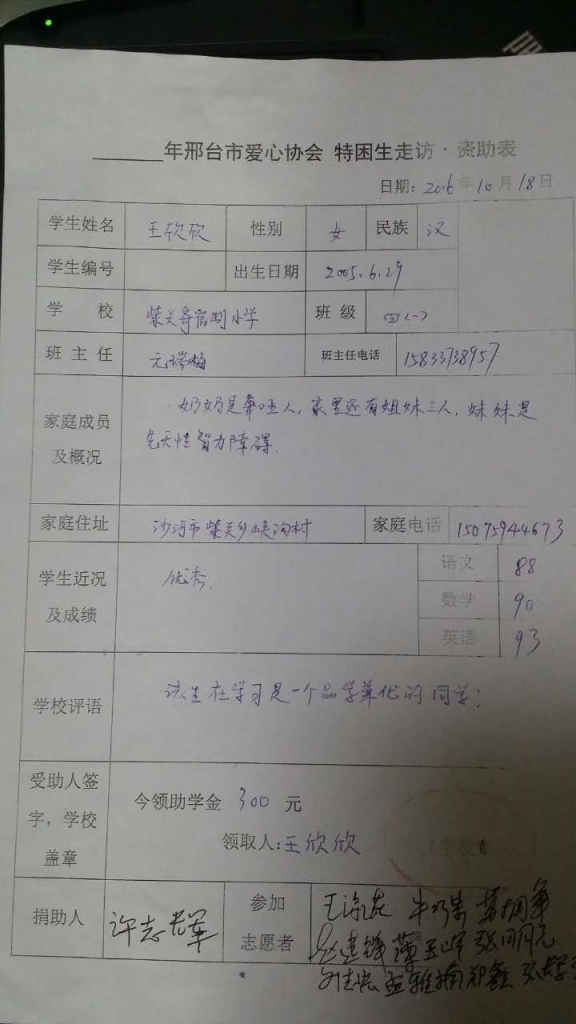 年邢台市爱心协会 特困生走访·资助表
日期：2016年10月18日
学生姓名 王欣欣 性别 女 民族 汉
学生编号 出生日期 2005.6.29
学 校 柴关寄宿制小学 班 级 四(一)
班 主 任 元瑞梅 班主任电话 15833738957
家庭成员
及概况
奶奶是聋哑人，家里还有姐妹三人，妹妹是
先天性智力障碍.
家庭住址 沙河市柴关乡 沟村 家庭电话 15075944673
学生近况
及成绩
优秀.
语文 88
数学 90
英语 93
学校评语 该生在学习是一个品学兼优的同学！
受助人签
字，学校
盖章
今领助学金 300 元
领取人：王欣欣
（学校
捐助人 许志 军
参加
志愿者